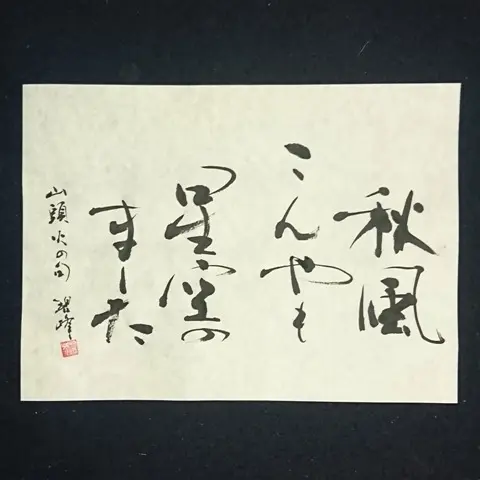 秋風
こんやも
星空の
ました
山頭火の句